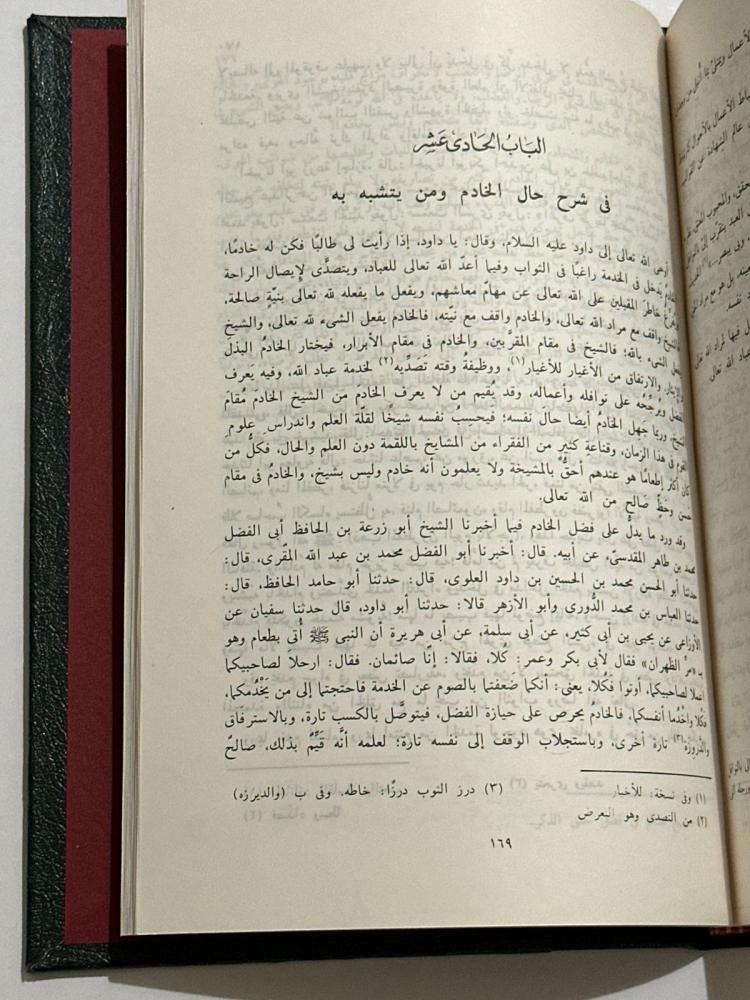 الباب الحادى عشر
فى شرح حال الخادم ومن يتشبه به
أوحى الله تعالى إلى داود عليه السلام، وقال: يا داود، إذا رأيت لى طالبًا فكن له خادمًا،
يدخل فى الخدمة راغبًا فى الثواب وفيما أعدّ الله تعالى للعباد، ويتصدَّى لإيصال الراحة
ويُفرغ خاطر المقبلين على الله تعالى عن مهامّ معاشهم، ويفعل ما يفعله لله تعالى بنيّةٍ صالحة،
فالشيخ واقف مع مراد الله تعالى، والخادم واقف مع نيّته، فالخادم يفعل الشىء لله تعالى، والشيخ
يفعل الشىء بالله؛ فالشيخ فى مقام المقرَّبين، والخادم فى مقام الأبرار، فيختار الخادمُ البذل
والإيثار والارتفاق من الأغيار للأغيار(١)، ووظيفةُ وقته تَصَدِّيه(٢) لخدمة عباد الله، وفيه يَعرف
الفضل ويُرجِّحُه على نوافله وأعماله، وقد يُقيم من لا يعرف الخادمَ من الشيخ الخادمَ مُقامَ
الشيخ، وربما جهل الخادمُ أيضا حالَ نفسه؛ فيحسِبُ نفسه شيخًا لقلّة العلم واندراس علوم
القوم فى هذا الزمان، وقناعة كثيرٍ من الفقراء من المشايخ باللقمة دون العلم والحال، فكلُّ من
كان أكثر إطعامًا هو عندهم أحقُّ بالمشيخة ولا يعلمون أنه خادم وليس بشيخ، والخادمُ فى مقام
حَسن وحَظٍّ صَالح من الله تعالى.
وقد ورد ما يدلُّ على فضل الخادم فيما أخبرنا الشيخ أبو زرعة بن الحافظ أبى الفضل
محمد بن طاهر المقدسىّ، عن أبيه. قال: أخبرنا أبو الفضل محمد بن عبد الله المقّرى، قال:
حدثنا أبو الحسن محمد بن الحسين بن داود العلوى، قال: حدثنا أبو حامد الحافظ، قال:
حدثنا العباس بن محمد الدُّورى وأبو الأزهر قالا: حدثنا أبو داود، قال حدثنا سفيان عن
الأوزاعى عن يحيى بن أبى كثير، عن أبى سلمة، عن أبى هريرة أن النبى ﷺ أُتى بطعام وهو
بـ «مرّ الظهران» فقال لأبى بكر وعمر: كُلا، فقالا: إنّا صائمان. فقال: ارحلا لصاحبيكما
اعملا لصاحبيكما، أدنوا فَكُلا، يعنى: أنكما ضَعفتما بالصوم عن الخدمة فاحتجتما إلى من يَخْدُمكما،
فكُلا واخُدُما أنفسكما، فالخادمُ يحرص على حيازة الفضل، فيتوصَّل بالكسب تارة، وبالاسترفَاق
والدَّروزة(٣) تارة أخرى، وباستجلاب الوقف إلى نفسه تارة؛ لعلمه أنَّه قَيِّمٌ بذلك، صالحٌ
(١) وفى نسخة: للأخيار
(٢) من التصدى وهو التعرض
(٣) درز الثوب درزًا: خاطه. وفى ب (والديرزه)
١٦٩